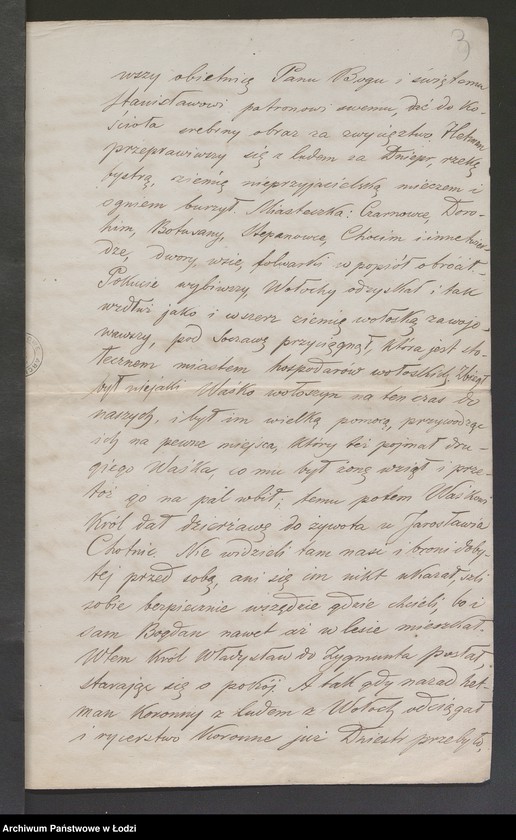 3
wszy obietnicę Panu Bogu i świętemu
Stanisławowi patronowi swemu, dać do Ko-
ścioła srebrny obraz za zwycięztwo. Hetman
przeprawiwszy się z ludem za Dniepr, rzekę
bystrą, ziemię nieprzyjacielską mieczem i
ogniem burzył. Miasteczka: Czarnowce, Doro-
him, Botuszany, Stepanowce, Chocim i inne
dwory, wsie, folwarki w popiół obrócił.
Pokucie wybiwszy, Wołochy odzyskał i tak
wzdłuż jako i wszerz ziemię wołoską zawojo-
wawszy, pod Soczawę przyciągnął, która jest sto-
łecznem miastem hospodarów wołoskich. Zbiegł
był niejaki Waśko wołoszyn na ten czas do
naszych, i był im wielką pomocą, przywodząc
ich na pewne miejsca, który też pojmał dru-
giego Waśka, co mu był żonę wziął i prze-
toż go na pal wbił; temu potem Waśkowi
Król dał dzierżawę do żywota u Jarosławia
Chotnic. Nie widzieli tam nasi i broni doby-
tej przed sobą, ani się im nikt ukazał, szli
sobie bezpiecznie wszędzie gdzie chcieli, bo i
sam Bogdan nawet aż w lesie mieszkał.
Wtem Król Władysław do Zygmunta posłał,
starając się o pokój. A tak gdy nazad het-
man Koronny z ludem z Wołoch odciągał
i rycerstwo Koronne już Dniestr przebyło,
Archiwum Państwowe w Łodzi